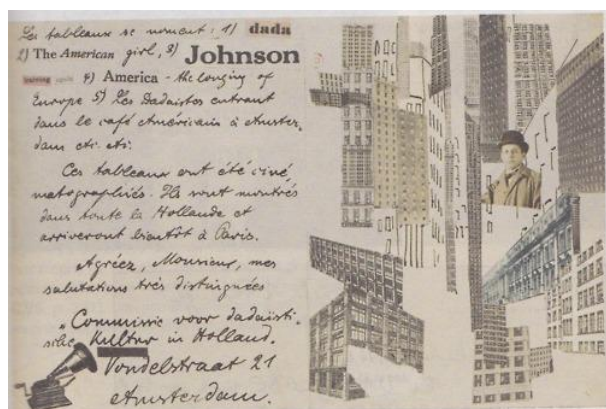 Les tableaux se nomment : 1) dada
2) The American girl, 3) Johnson
4) America - the longing of
Europe 5) Les Dadaistes entrant
dans le café Américain à Amster.
dam etc. etc.
Ces tableaux ont été ciné
matographiés. Ils sont montrés
dans toute la Hollande et
arriveront bientôt à Paris.
Agréez, Monsieur, mes
salutations très distinguées
"Commissie voor dadaisti.
sche Kultur in Holland.
Vondelstraat 21
Amsterdam.